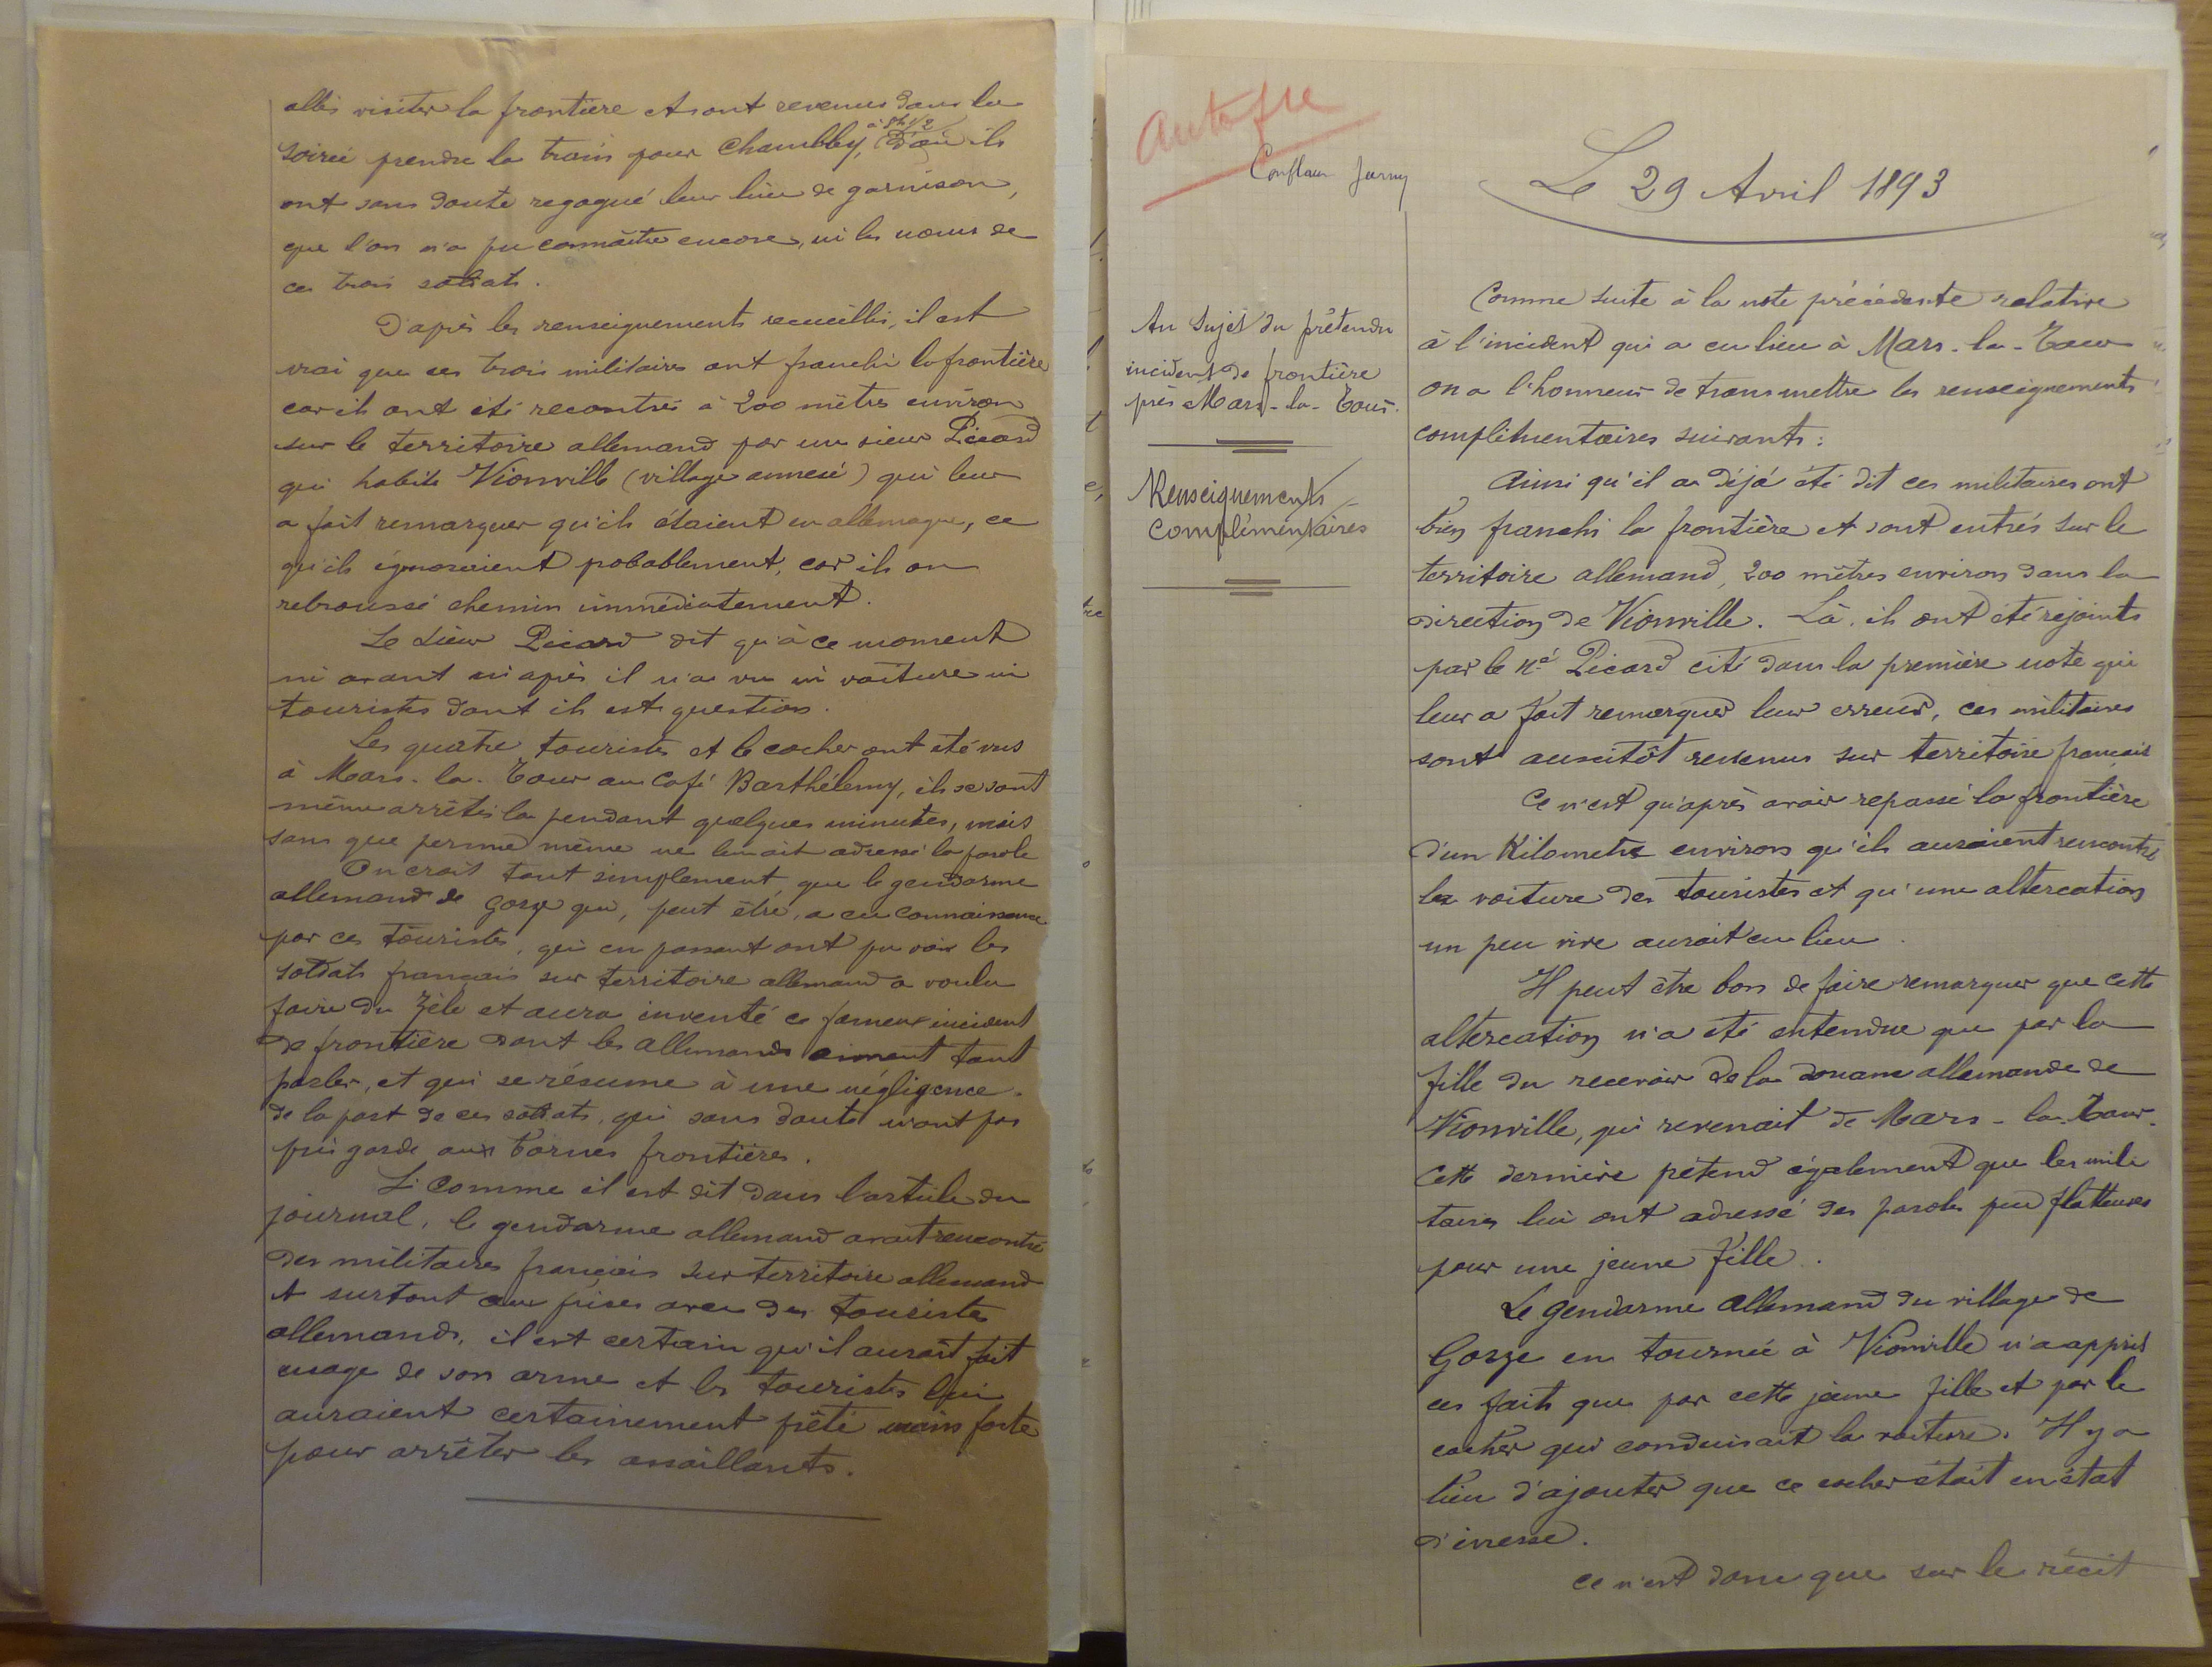 allés visiter la frontière et sont revenus dans la
à 8h 1/2
soirée prendre le train pour Chambley, d'où ils
ont sans doute regagné leur lieu de garnison,
que l'on n'a pu connaître encore, ni les noms de
ces trois soldats.
D'après les renseignements recueillis, il est
vrai que ces trois militaires ont franchi la frontière
car ils ont été recontrés à 200 mètres environ
sur le territoire allemand par un sieur Picard
qui habite Vionville (village annexé) qui leur
a fait remarquer qu'ils étaient en allemagne, ce
qu'ils ignoraient probablement, car ils on
rebroussé chemin immédiatement.
Le sieur Picard dit qu'à ce moment
ni avant ni après il n'a vu ni voiture ni
touristes dont il est question.
Les quatre touristes et le cocher ont été vus
à Mars-la-Tour au Café Barthélemy, ils se sont
même arrêtés la pendant quelques minutes, mais
sans que personne même ne leur ait adressé la parole
On croit tout simplement, que le gendarme
allemand de Gorze qui, peut être, a eu connaissance
par ces touristes, qui en passant ont pu voir les
soldats français sur territoire allemand a voulu
faire du zèle et aura inventé ce fameux incident
de frontière dont les allemands aiment tant
parler, et qui se résume à une négligence
de la part de ces soldats, qui sans doute n'ont pas
pris garde aux bornes frontières.
Si comme il est dit dans l'article du
journal, le gendarme allemand avait rencontré
des militaires français sur territoire allemand
et surtout aux prises avec des touristes
allemands, il est certain qu'il aurait fait
usage de son arme et les touristes lui
auraient certainement prêté main forte
pour arrêter les assaillants.
Conflans Jarny
Le 29 Avril 1893
Au sujet du prétendu
incident de frontière
près Mars-la-Tour.
Renseignements
Complémentaires
Comme suite à la note précédente relative
à l'incident qui a eu lieu à Mars-la-Tour
on a l'honneur de transmettre les renseignements
complémentaires suivants:
Ainsi qu'il a déjà été dit ces militaires ont
bien franchi la frontière et sont entrés sur le
territoire allemand, 200 mètres environ dans la
direction de Vionville. Là, ils ont été rejoints
par le né Picard cité dans la première note qui
leur a fait remarquer leur erreur, ces militaires
sont aussitôt revenus sur territoire français
Ce n'est qu'après avoir repassé la frontière
d'un Kilometre environ qu'ils auraient rencontré
la voiture des touristes et qu'une altercation
un peu vive aurait eu lieu.
Il peut être bon de faire remarquer que cette
altercation n'a été entendue que par la
fille du receveur de la douane allemande de
Vionville, qui revenait de Mars-la-Tour.
Cette dernière prétend également que les mili
taires lui ont adressé des paroles peu flatteuses
pour une jeune fille.
Le gendarme allemand du village de
Gorze en tournée à Vionville n'a appris
ces faits que par cette jeune fille et par le
cocher qui conduisait la voiture. Il y a
lieu d'ajouter que ce cocher était en état
d'ivresse.
Ce n'est donc que sur le récit